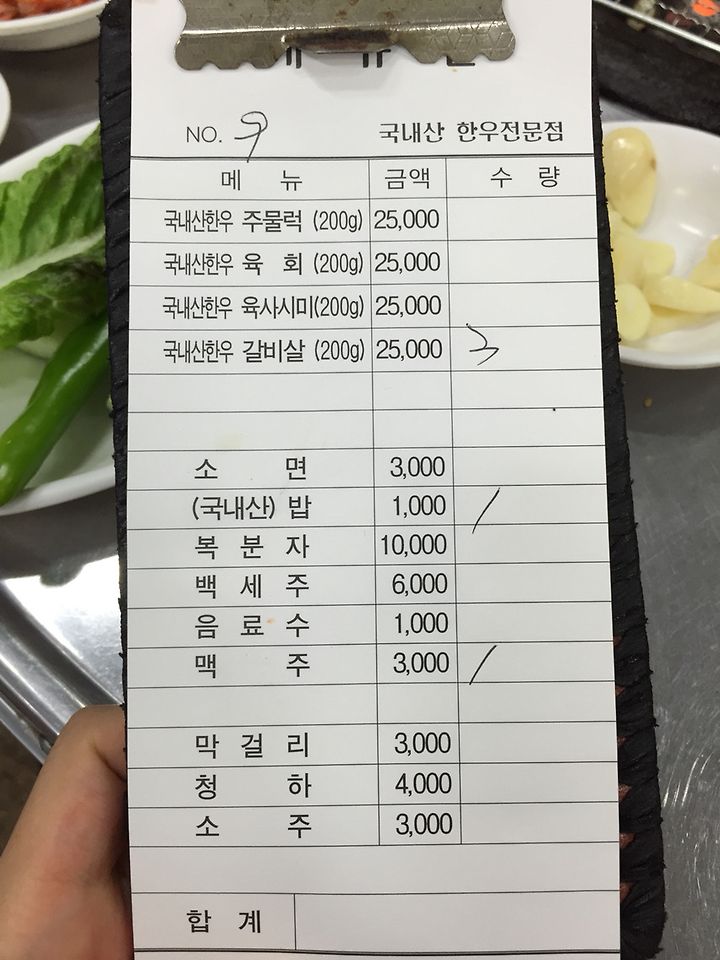 NO. 9 국내산 한우전문점
메 뉴 금액 수 량
국내산한우 주물럭 (200g) 25,000
국내산한우 육 회 (200g) 25,000
국내산한우 육사시미(200g) 25,000
국내산한우 갈비살 (200g) 25,000 3
소 면 3,000
(국내산) 밥 1,000 /
복 분 자 10,000
백 세 주 6,000
음 료 수 1,000
맥 주 3,000 /
막 걸 리 3,000
청 하 4,000
소 주 3,000
합 계